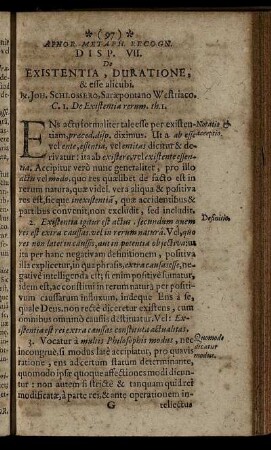 * ( 97 ) *
APHOR. METAPH. RECOGN.
DISP. VII.
De
EXISTENTIA, DURATIONE,
& esse alicubi.
R. JOH. SCHLOMERO, Saræpontano Westriaco.
C. 1. De Existentia rerum. th. 1.
ENs actu formaliter tale esse per existen-
tiam, præced. disp. diximus. Ut à ab esse
vel ente, essentia, vel entitas dicitur & de-
rivatur: ita ab existere, vel existente essen-
tia. Accipitur verò nunc generaliter, pro illo
actu vel modo, quo res qualibet de facto est in
rerum natura, quæ videl. vera aliqua & positiva
res est, sicque inexistentiâ, quæ accidentibus &
partibus convenit, non excludit, sed includit.
Notatio &
acceptio.
2. Existentia igitur est actus, secundùm quem
res est extra caussas, vel in rerum naturâ. Vel, quo
res non latet in caussis, aut in potentia objectivâ: ut
ita per hanc negativam definitionem, positiva
illa explicetur, in quæ phrasis, extra causas esse, ne-
gativè intelligenda est; si enim positivè sumatur,
idem est, ac constitui in rerum naturâ per positi-
vum causarum influxum, indeque Ens à se,
quale Deus, non rectè diceretur existens, cum
omnibus omninò caussis destituatur. Vel: Ex-
istentia est rei extra caussas constituta actualitas.
Definitio.
3. Vocatur à multis Philosophis modus, nec
incongruè, si modus latè accipiatur, pro quavis
ratione, ens ad certum statum determinante,
quomodo ipsæ quoque affectiones modi dicun-
tur: non autem si strictè & tanquam quid rei
modificatæ, à parte rei, & ante operationem in-
Quomodo
dicatur
modus.
G tellectus